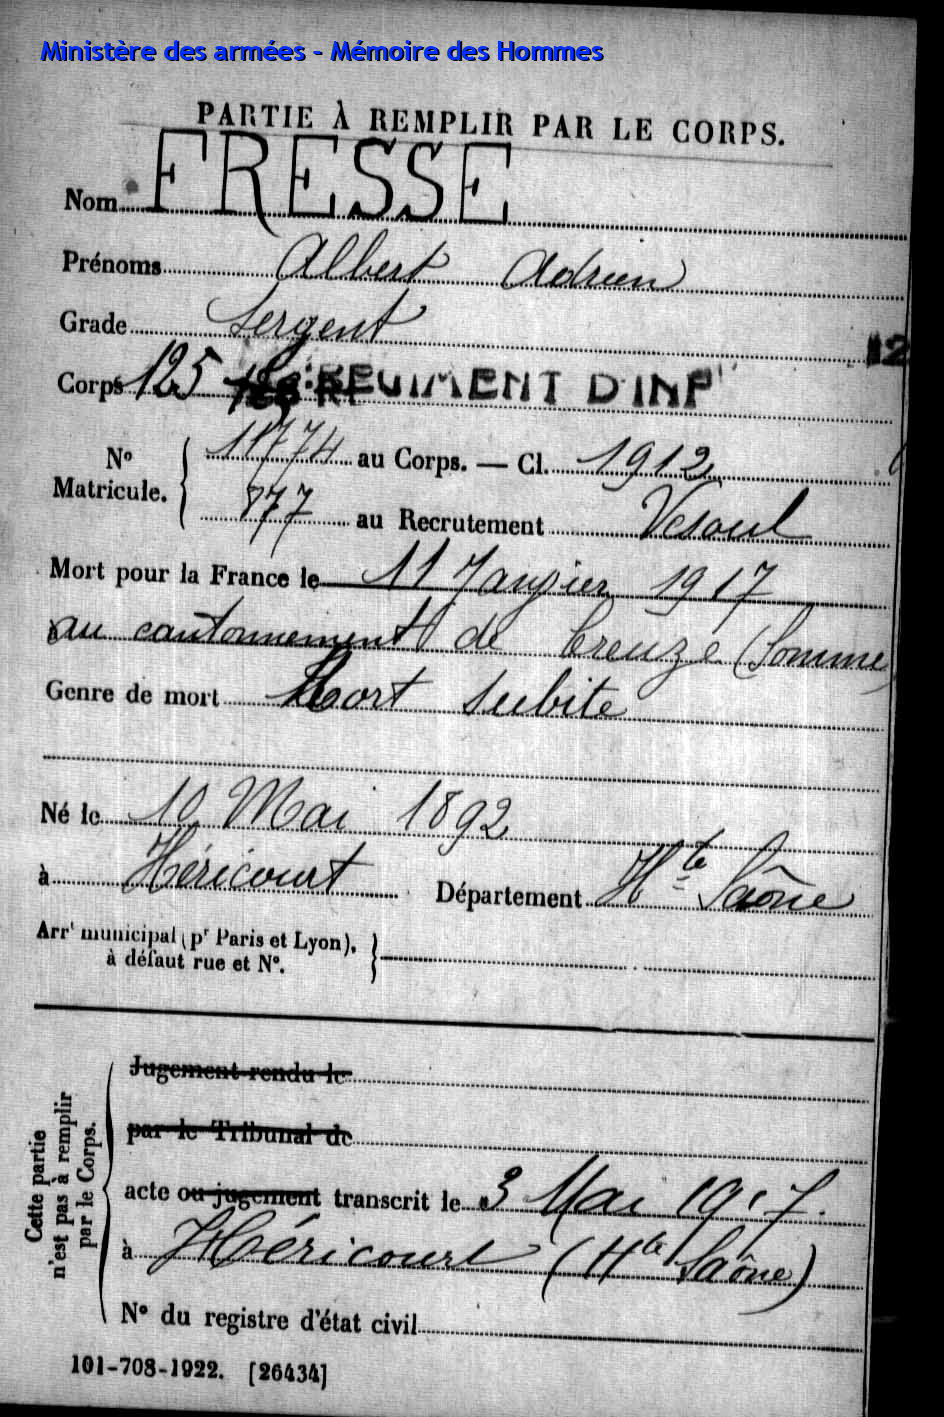 Ministère des armées - Mémoire des Hommes
PARTIE À REMPLIR PAR LE CORPS.
Nom FRESSE
Prénoms Albert Adrien
Grade Sergent
12
Corps 125 RÉGIMENT D'INF
N° Matricule. 11774 au Corps. — Cl. 1912
777 au Recrutement Vesoul
Mort pour la France le 11 Janvier 1917
au cantonnement de Creuze (Somme)
Genre de mort Mort subite
Né le 10 Mai 1892
à Héricourt Département Hte Saône
Arrt municipal (pr Paris et Lyon),
à défaut rue et N°.
Cette partie
n'est pas à remplir
par le Corps.
Jugement rendu le
par le Tribunal de
acte ou jugement transcrit le 3 Mai 1917.
à Héricourt (Hte Saône)
N° du registre d'état civil
101-708-1922. [26434]